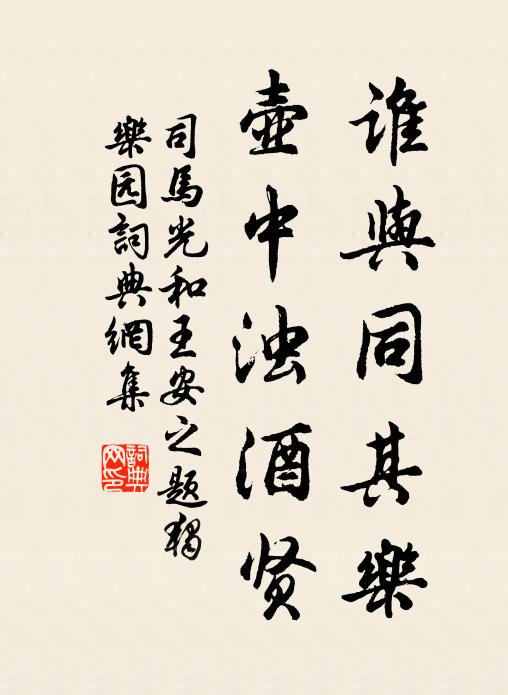 谁與同其樂
壺中浊酒贤
司馬光和王安之題獨
樂园詞典網集
詞典网印